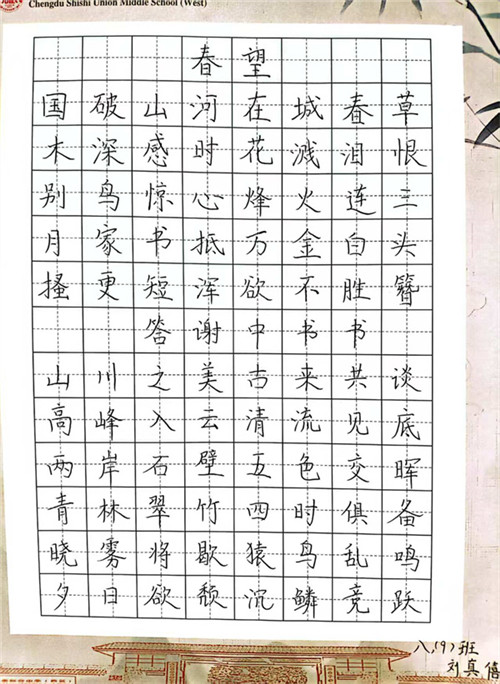 Chengdu Shishi Union Middle School (West)
春望
国破山河在城春草
木深感时花溅泪恨
别鸟惊心烽火连三
月家书抵万金白头
搔更短浑欲不胜簪
答谢中书书
山川之美古来共谈
高峰入云清流见底
两岸石壁五色交晖
青林翠竹四时俱备
晓雾将歇猿鸟乱鸣
夕日欲颓沉鳞竞跃
八(9)班
刘真僖